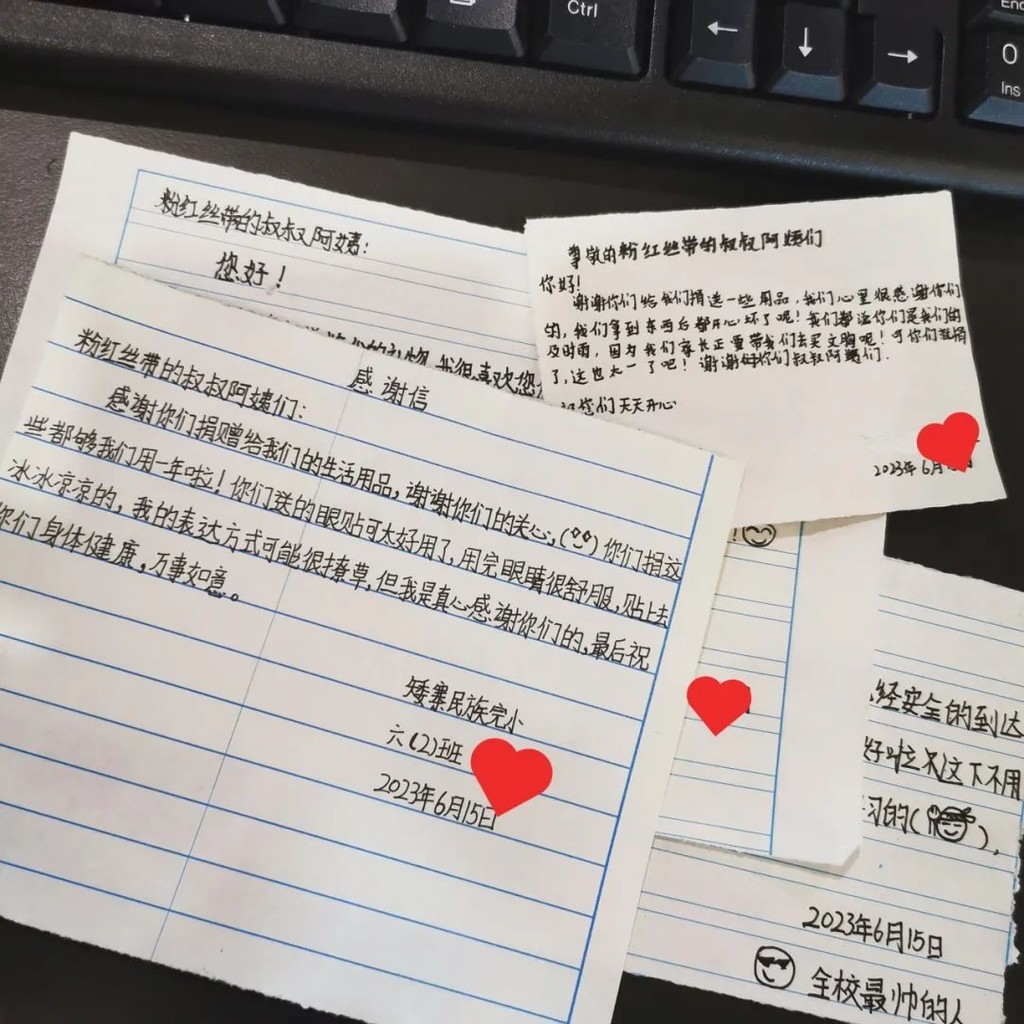 Ctrl
←
↓
→
0
Ins
粉红丝带的叔叔阿姨:
您好!
我很喜欢您
尊敬的粉红丝带的叔叔阿姨们
你好!
谢谢你们给我们捐送一些用品,我们心里很感谢你们
的,我们拿到东西后都开心坏了呢!我们都说你们是我们的
及时雨,因为我们家长正要带我们去买文胸呢!可你们就捐
了,这也太一了吧!谢谢你们叔叔阿姨们.
祝你们天天开心
2023年6月
感谢信
粉红丝带的叔叔阿姨们:
感谢你们捐赠给我们的生活用品,谢谢你们的关心,你们捐这
些都够我们用一年啦!你们送的眼贴可太好用了,用完眼睛很舒服,贴上去
冰冰凉凉的,我的表达方式可能很撩草,但我是真心感谢你们的,最后祝
你们身体健康,万事如意。
矮寨民族完小
六(2)班
2023年6月15日
经安全的到达
这下不用
习的( ),
2023年6月15日
全校最帅的人